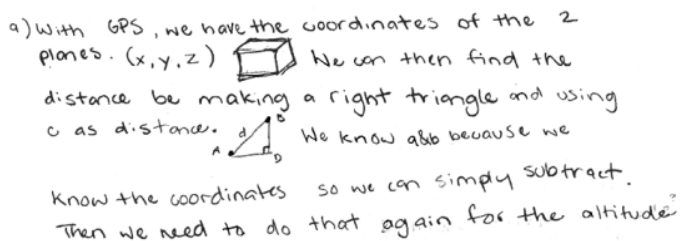 a) With GPS, we have the coordinates of the 2
planes. (x,y,z) We can then find the
distance be making a right triangle and using
c as distance. d B A D We know a&b because we
know the coordinates so we can simply subtract.
Then we need to do that again for the altitude?